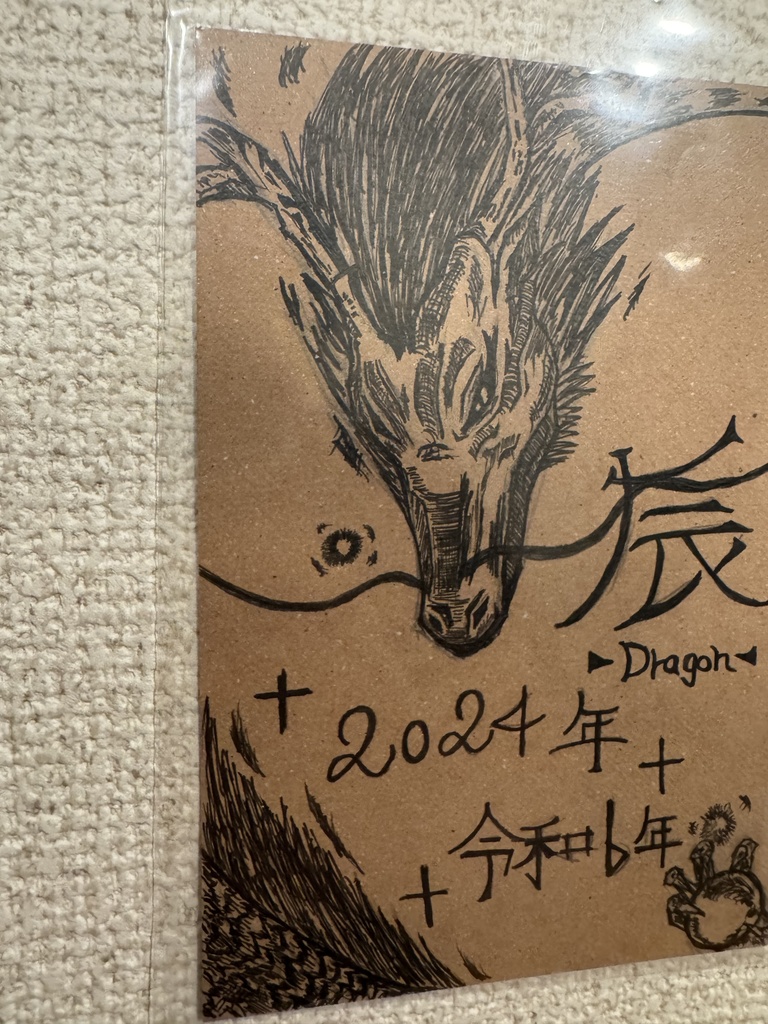 辰
Dragon
2024年
令和6年